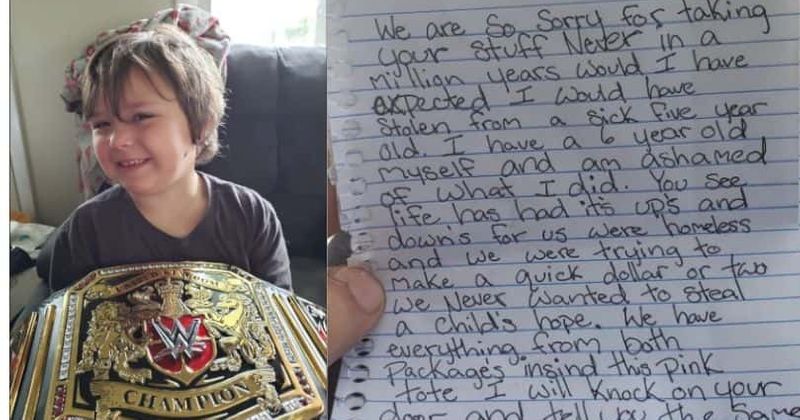 W
CHAMPION
We are So Sorry for taking
your stuff Never in a
million years would I have
expected I would have
stolen from a sick five year
old. I have a 6 year old
myself and am ashamed
of what I did. You see
life has had it's up's and
down's for us were homeless
and we were trying to
make a quick dollar or two
we Never wanted to steal
a child's hope. We have
everything from both
Packages insind this Pink
tote I will knock on your
door and tell you to